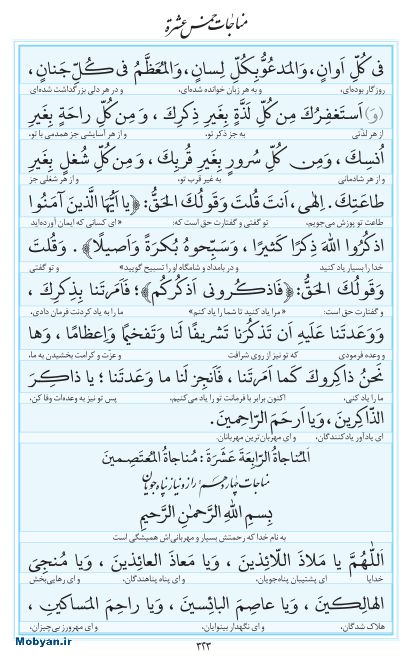 مناجات خمس عشرة
فى كُلِّ اَوانٍ، وَالمَدعُوُّ بِكُلِّ لِسانٍ، وَالمُعَظَّمُ فى كُلِّ جَنانٍ،
روزگار بوده‌ای، و به هر زبان خوانده شده‌ای، و در هر دلی بزرگداشت شده‌ای
(وَ) اَستَغفِرُكَ مِن كُلِّ لَذَّةٍ بِغَيرِ ذِكرِكَ، وَ مِن كُلِّ راحَةٍ بِغَيرِ
از هر لذتی به جز ذکر تو، و از هر آسایشی جز همدمی با تو،
اُنسِكَ، وَ مِن كُلِّ سُرورٍ بِغَيرِ قُربِكَ، وَ مِن كُلِّ شُغلٍ بِغَيرِ
و از هر شادمانی به غیر قرب تو، و از هر شغلی جز
طاعَتِكَ. اِلٰهى، اَنتَ قُلتَ وَ قَولُكَ الحَقُّ: ﴿يا اَيُّهَا الَّذينَ آمَنُوا
طاعت تو پوزش می‌جویم. تو گفتی و گفتارت حق است که: «ای کسانی که ایمان آورده‌اید
اذكُرُوا اللهَ ذِكرًا كَثيرًا، وَ سَبِّحوهُ بُكرَةً وَ اَصيلًا﴾. وَ قُلتَ
خدا را بسیار یاد کنید و در بامداد و شامگاه او را تسبیح گویید» و تو گفتی
وَ قَولُكَ الحَقُّ: ﴿فَاذكُرونى اَذكُركُم﴾؛ فَاَمَرتَنا بِذِكرِكَ،
و گفتارت حق است: «مرا یاد کنید تا شما را یاد کنم» ما را به یاد کردنت فرمان دادی،
وَ وَعَدتَنا عَلَيهِ اَن تَذكُرَنا تَشريفًا لَنا وَ تَفخيمًا وَ اِعظامًا، وَ ها
و وعده فرمودی که تو نیز از روی شرافت و عزّت و کرامت بخشیدن به ما،
نَحنُ ذاكِروكَ كَما اَمَرتَنا، فَاَنجِز لَنا ما وَعَدتَنا؛ يا ذاكِرَ
ما را یاد کنی، اکنون برابر با فرمانت تو را یاد می‌کنیم، پس تو نیز به وعده‌ات وفا کن،
الذّاكِرينَ، وَ يا اَرحَمَ الرّاحِمينَ.
ای یادآور یادکنندگان، و ای مهربان‌ترین مهربانان.
اَلمُناجاةُ الرّابِعَةَ عَشَرَةَ: مُناجاةُ المُعتَصِمينَ
مناجات چهاردهم: راز و نیاز پناه‌جویان
بِسمِ اللهِ الرَّحمٰنِ الرَّحيمِ
به نام خدا که رحمتش بسیار و مهربانی‌اش همیشگی است
اَللّٰهُمَّ يا مَلاذَ اللّائِذينَ، وَ يا مَعاذَ العائِذينَ، وَ يا مُنجِىَ
خدایا ای پشتیبان پناه‌جویان، و ای پناه پناهندگان، و ای رهایی‌بخش
الهالِكينَ، وَ يا عاصِمَ البائِسينَ، وَ يا راحِمَ المَساكينِ،
هلاک شدگان، و ای نگهدار بینوایان، و ای مهرورز بی‌چیزان،
۳۲۳
Mobyan.ir